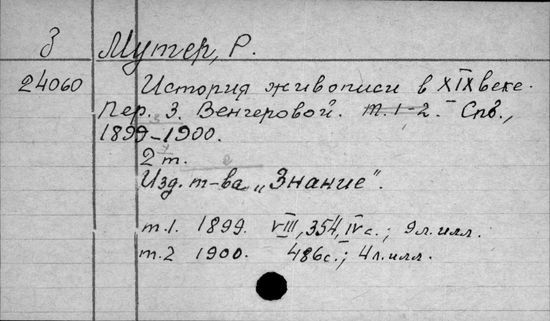 З Мутер, Р.
24060 История живописи в XIX веке.
Пер. З. Венгеровой. т. 1-2. Спб.,
1899-1900.
2 т.
Изд. т-ва „Знание".
т.1. 1899. VIII, 354, IV с.; 9 л. илл.
т.2 1900. 486 с.; 4 л. илл.